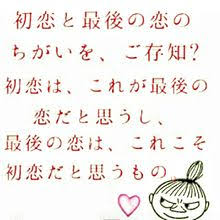 初恋と最後の恋の
ちがいを、ご存知?
初恋は、これが最後の
恋だと思うし、
最後の恋は、これこそ
初恋だと思うもの。